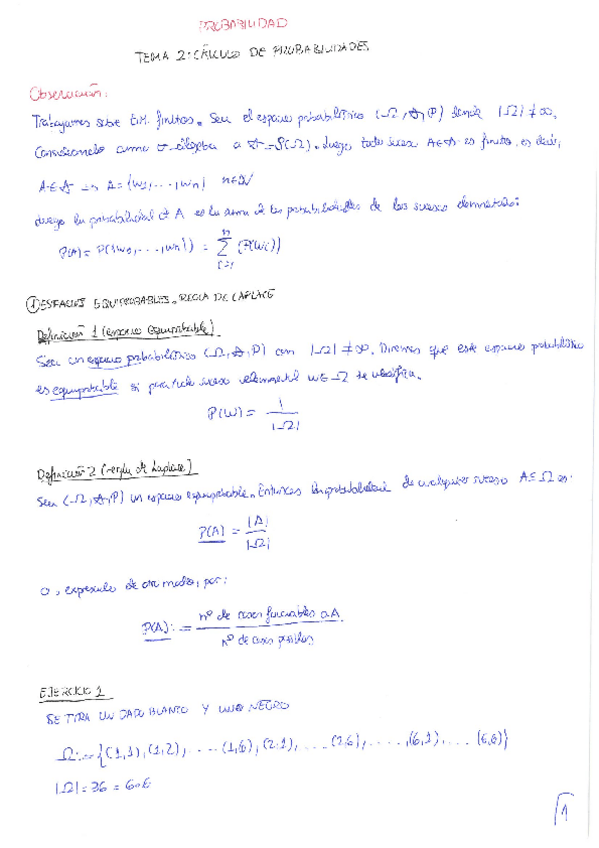 PROBABILIDAD
TEMA 2: CÁLCULO DE PROBABILIDADES
Observación:
Trabajamos sobre finitos. Sea el espacio probabilístico (Ω, A, P) donde |Ω| ≠ ∞,
Considerando como σ-álgebra a A = P(Ω). Luego todo suceso A∈A es finito, es decir,
A∈A ⇒ A = {w₁, ..., wₙ} n∈N
luego la probabilidad de A es la suma de las probabilidades de los sucesos elementales:
P(A) = P({w₁, ..., wₙ}) = Σⁿᵢ₌₁ (P(wᵢ))
① ESPACIOS EQUIPROBABLES. REGLA DE LAPLACE
Definición 1 (espacio equiprobable)
Sea un espacio probabilístico (Ω, A, P) con |Ω| ≠ ∞. Diremos que este espacio probabilístico
es equiprobable si para todo suceso elemental w∈Ω se verifica.
P(w) = 1 / |Ω|
Definición 2 (regla de Laplace)
Sea (Ω, A, P) un espacio equiprobable. Entonces la probabilidad de cualquier suceso A∈Ω es:
P(A) = |A| / |Ω|
o, expresado de otro modo, por:
P(A) := nº de casos favorables a A / nº de casos posibles
EJERCICIO 1
SE TIRA UN DADO BLANCO Y UNO NEGRO
Ω := {(1,1), (1,2), ... (1,6), (2,1), ... (2,6), ..., (6,1), ... (6,6)}
|Ω| = 36 = 6·6
1